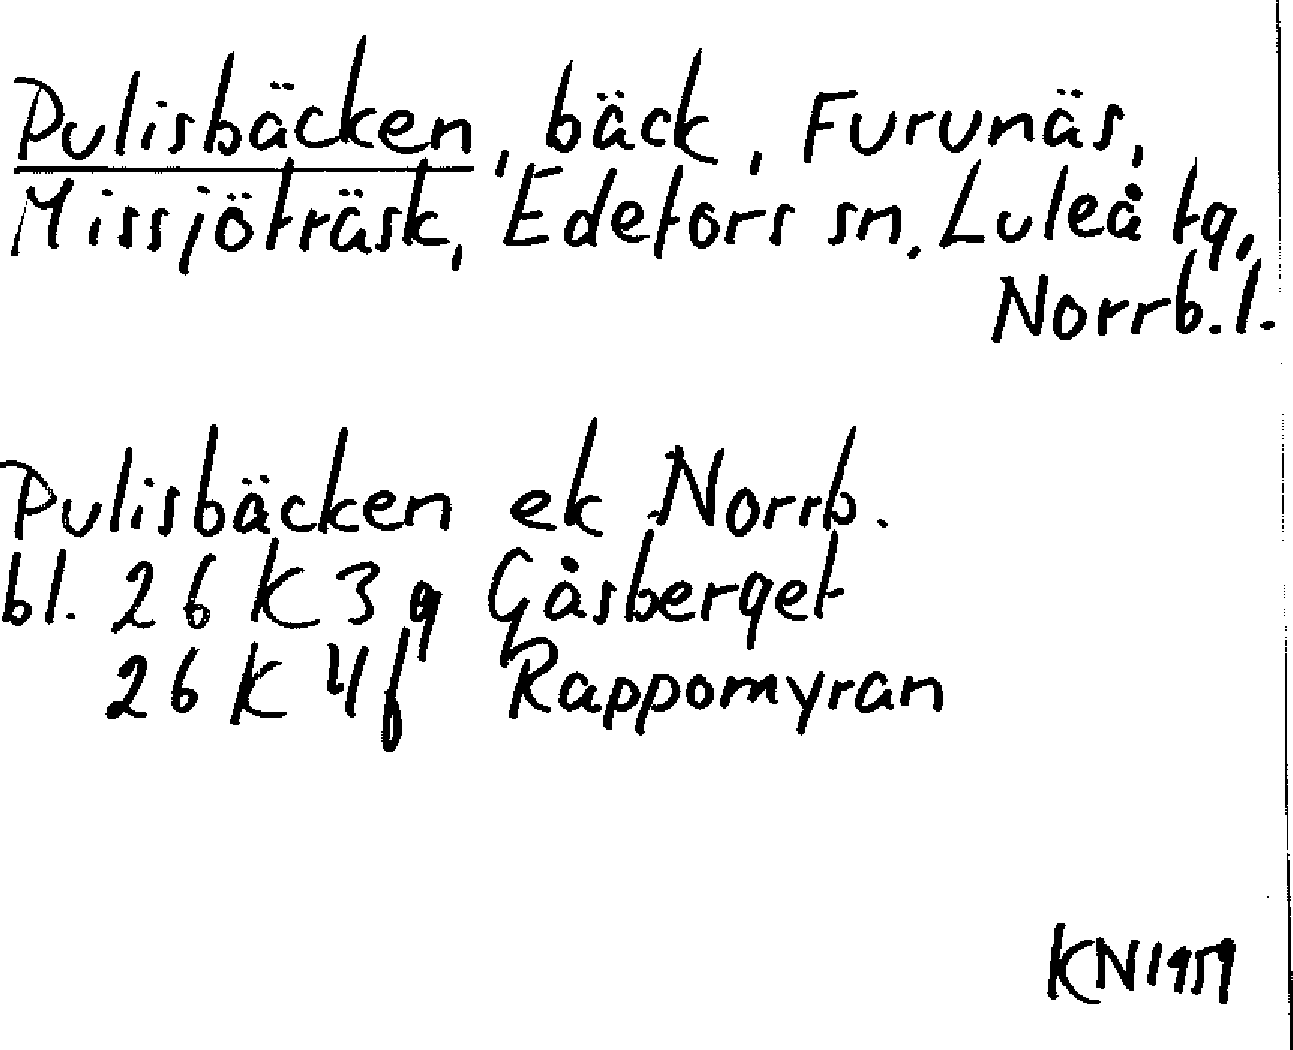 Pulisbäcken, bäck, Furunäs,
Missjöträsk, Edefors sn. Luleå tg,
Norrb. l.
Pulisbäcken ek Norrb.
bl. 26 K 3 g Gåsberget
26 K 4 f Rappomyran
KN 1959